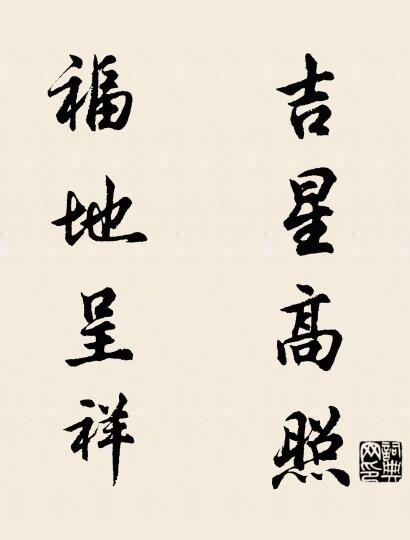 吉星高照
福地呈祥
詞典网印